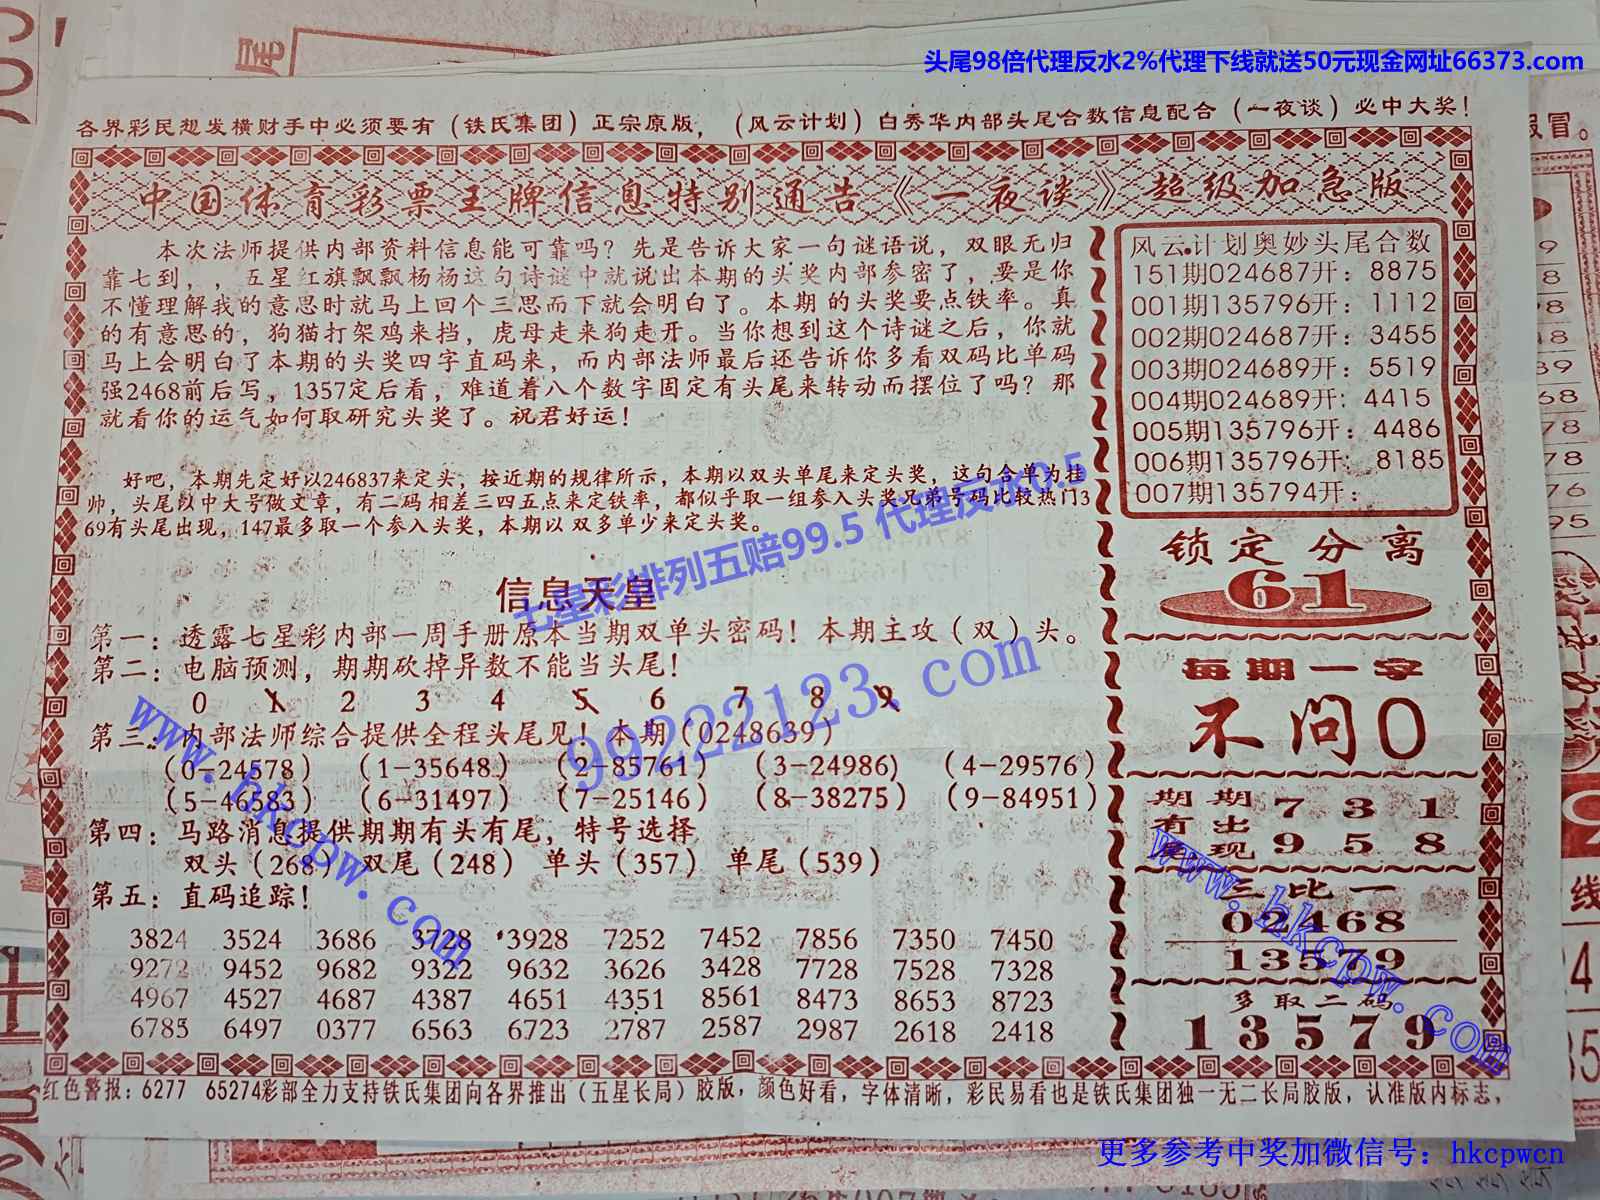 头尾98倍代理反水2%代理下线就送50元现金网址66373.com
各界彩民想发横财手中必须要有（铁氏集团）正宗原版，（风云计划）白秀华内部头尾合数信息配合（一夜谈）必中大奖！
中国体育彩票王牌信息特别通告《一夜谈》超级加急版
本次法师提供内部资料信息能可靠吗？先是告诉大家一句谜语说，双眼无归
靠七到，，五星红旗飘飘杨杨这句诗谜中就说出本期的头奖内部参密了，要是你
不懂理解我的意思时就马上回个三思而下就会明白了。本期的头奖要点铁率。真
的有意思的，狗猫打架鸡来挡，虎母走来狗走开。当你想到这个诗谜之后，你就
马上会明白了本期的头奖四字直码来，而内部法师最后还告诉你多看双码比单码
强2468前后写，1357定后看，难道着八个数字固定有头尾来转动而摆位了吗？那
就看你的运气如何取研究头奖了。祝君好运！
好吧，本期先定好以246837来定头，接近期的规律所示，本期以双头单尾来定头奖，这句合单为挂
帅，头尾以中大号做文章，有二码相差三四五点来定铁率，都似乎取一组参入头奖兄弟号码比较热门3
69有头尾出现，147最多取一个参入头奖，本期以双多单少来定头奖。
七星彩排列五赔99.5 代理反水0.5
信息天皇
第一：透露七星彩内部一周手册原本当期双单头密码！本期主攻（双）头。
第二：电脑预测，期期砍掉异数不能当头尾！
0 1 2 3 4 5 6 7 8 9
第三：内部法师综合提供全程头尾见！本期（0248639）
（0-24578）（1-35648）（2-85761）（3-24986）（4-29576）
（5-46583）（6-31497）（7-25146）（8-38275）（9-84951）
第四：马路消息提供期期有头有尾，特号选择
双头（268）双尾（248）单头（357）单尾（539）
第五：直码追踪！
3824 3524 3686 3728 3928 7252 7452 7856 7350 7450
9272 9452 9682 9322 9632 3626 3428 7728 7528 7328
4967 4527 4687 4387 4651 4351 8561 8473 8653 8723
6785 6497 0377 6563 6723 2787 2587 2987 2618 2418
99222123.com
www.hkcpw.com
风云计划奥妙头尾合数
151期024687开：8875
001期135796开：1112
002期024687开：3455
003期024689开：5519
004期024689开：4415
005期135796开：4486
006期135796开：8185
007期135794开：
锁定分离
61
每期一字
不问0
期期 7 3 1
有出
现 9 5 8
三比一
02468
13579
多取二码
13579
www.hkcpw.com
红色警报：6277 65274彩部全力支持铁氏集团向各界推出（五星长局）胶版，颜色好看，字体清晰，彩民易看也是铁氏集团独一无二长局胶版，认准版内标志，
更多参考中奖加微信号：hkcpwcn